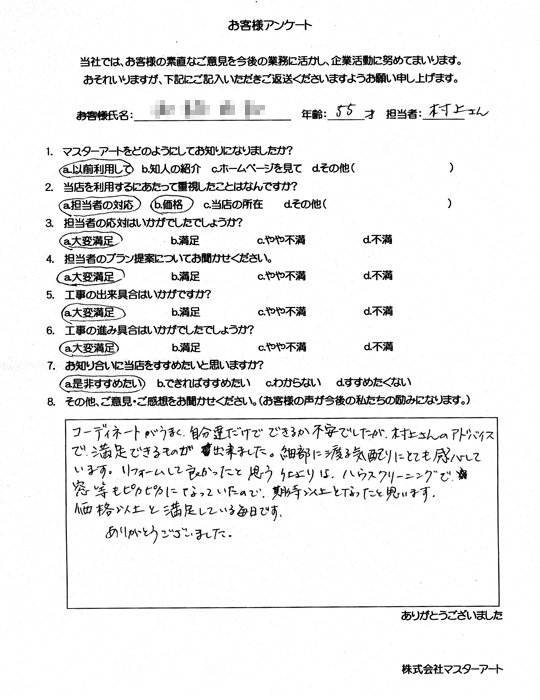 お客様アンケート
当社では、お客様の素直なご意見を今後の業務に活かし、企業活動に努めてまいります。
おそれいりますが、下記にご記入いただきご返送くださいますようお願い申し上げます。
お客様氏名： 年齢：55才 担当者：村上さん
1. マスターアートをどのようにしてお知りになりましたか?
a.以前利用して b.知人の紹介 c.ホームページを見て d.その他( )
2. 当店を利用するにあたって重視したことはなんですか?
a.担当者の対応 b.価格 c.当店の所在 d.その他( )
3. 担当者の応対はいかがでしたでしょうか?
a.大変満足 b.満足 c.やや不満 d.不満
4. 担当者のプラン提案についてお聞かせください。
a.大変満足 b.満足 c.やや不満 d.不満
5. 工事の出来具合はいかがですか?
a.大変満足 b.満足 c.やや不満 d.不満
6. 工事の進み具合はいかがでしたでしょうか?
a.大変満足 b.満足 c.やや不満 d.不満
7. お知り合いに当店をすすめたいと思いますか?
a.是非すすめたい b.できればすすめたい c.わからない d.すすめたくない
8. その他、ご意見・ご感想をお聞かせください。(お客様の声が今後の私たちの励みになります。)
コーディネートがうまく、自分達だけでできるか不安でしたが、村上さんのアドバイス
で、満足できるものが出来ました。細部に渡る気配りにとても感心して
います。リフォームして良かったと思う仕上りは、ハウスクリーニングで、
窓等もピカピカになっていたので、期待以上となったと思います。
価格以上と満足している毎日です。
ありがとうございました。
ありがとうございました
株式会社マスターアート